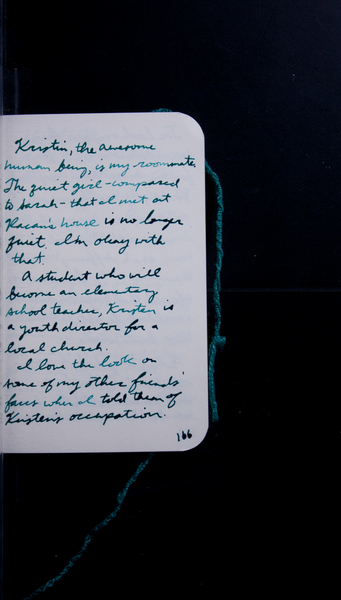 Kristin, the awesome
human being, is my roommate.
The quiet girl - compared
to Sarah - that I met at
house is no longer
quiet. I'm okay with
that.
A student who will
become an elementary
school teacher, Kristen is
a youth director for a
local church.
I love the look on
some of my other friends'
faces when I told them of
Kristen's occupation.
166